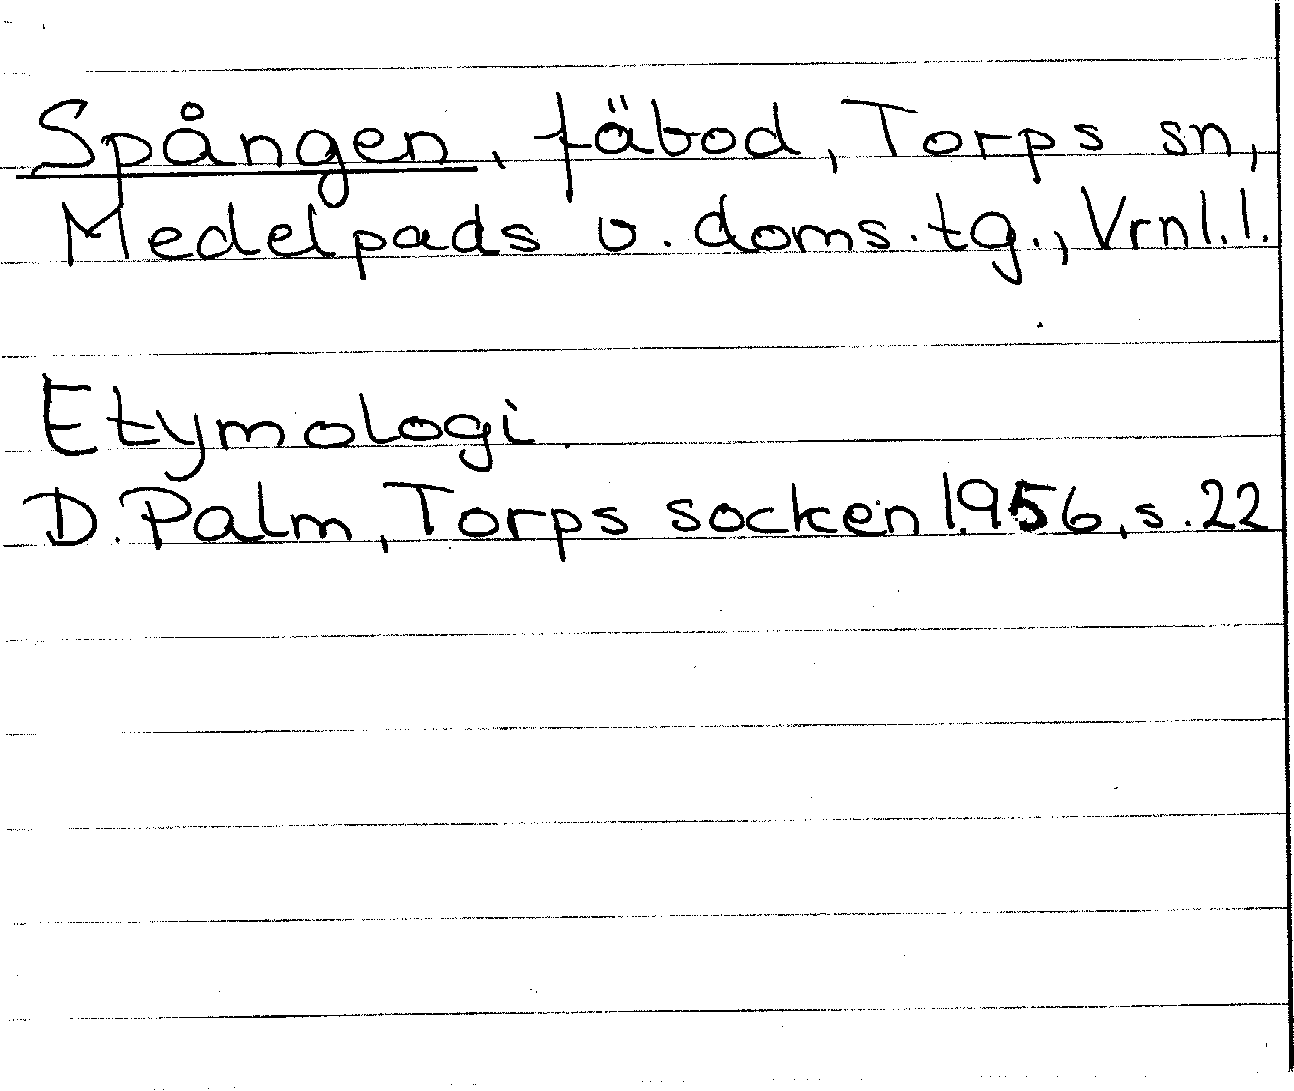 Spången, fäbod, Torps sn,
Medelpads v. doms.tg., Vrnl.l.
Etymologi.
D. Palm, Torps socken 1956, s. 22